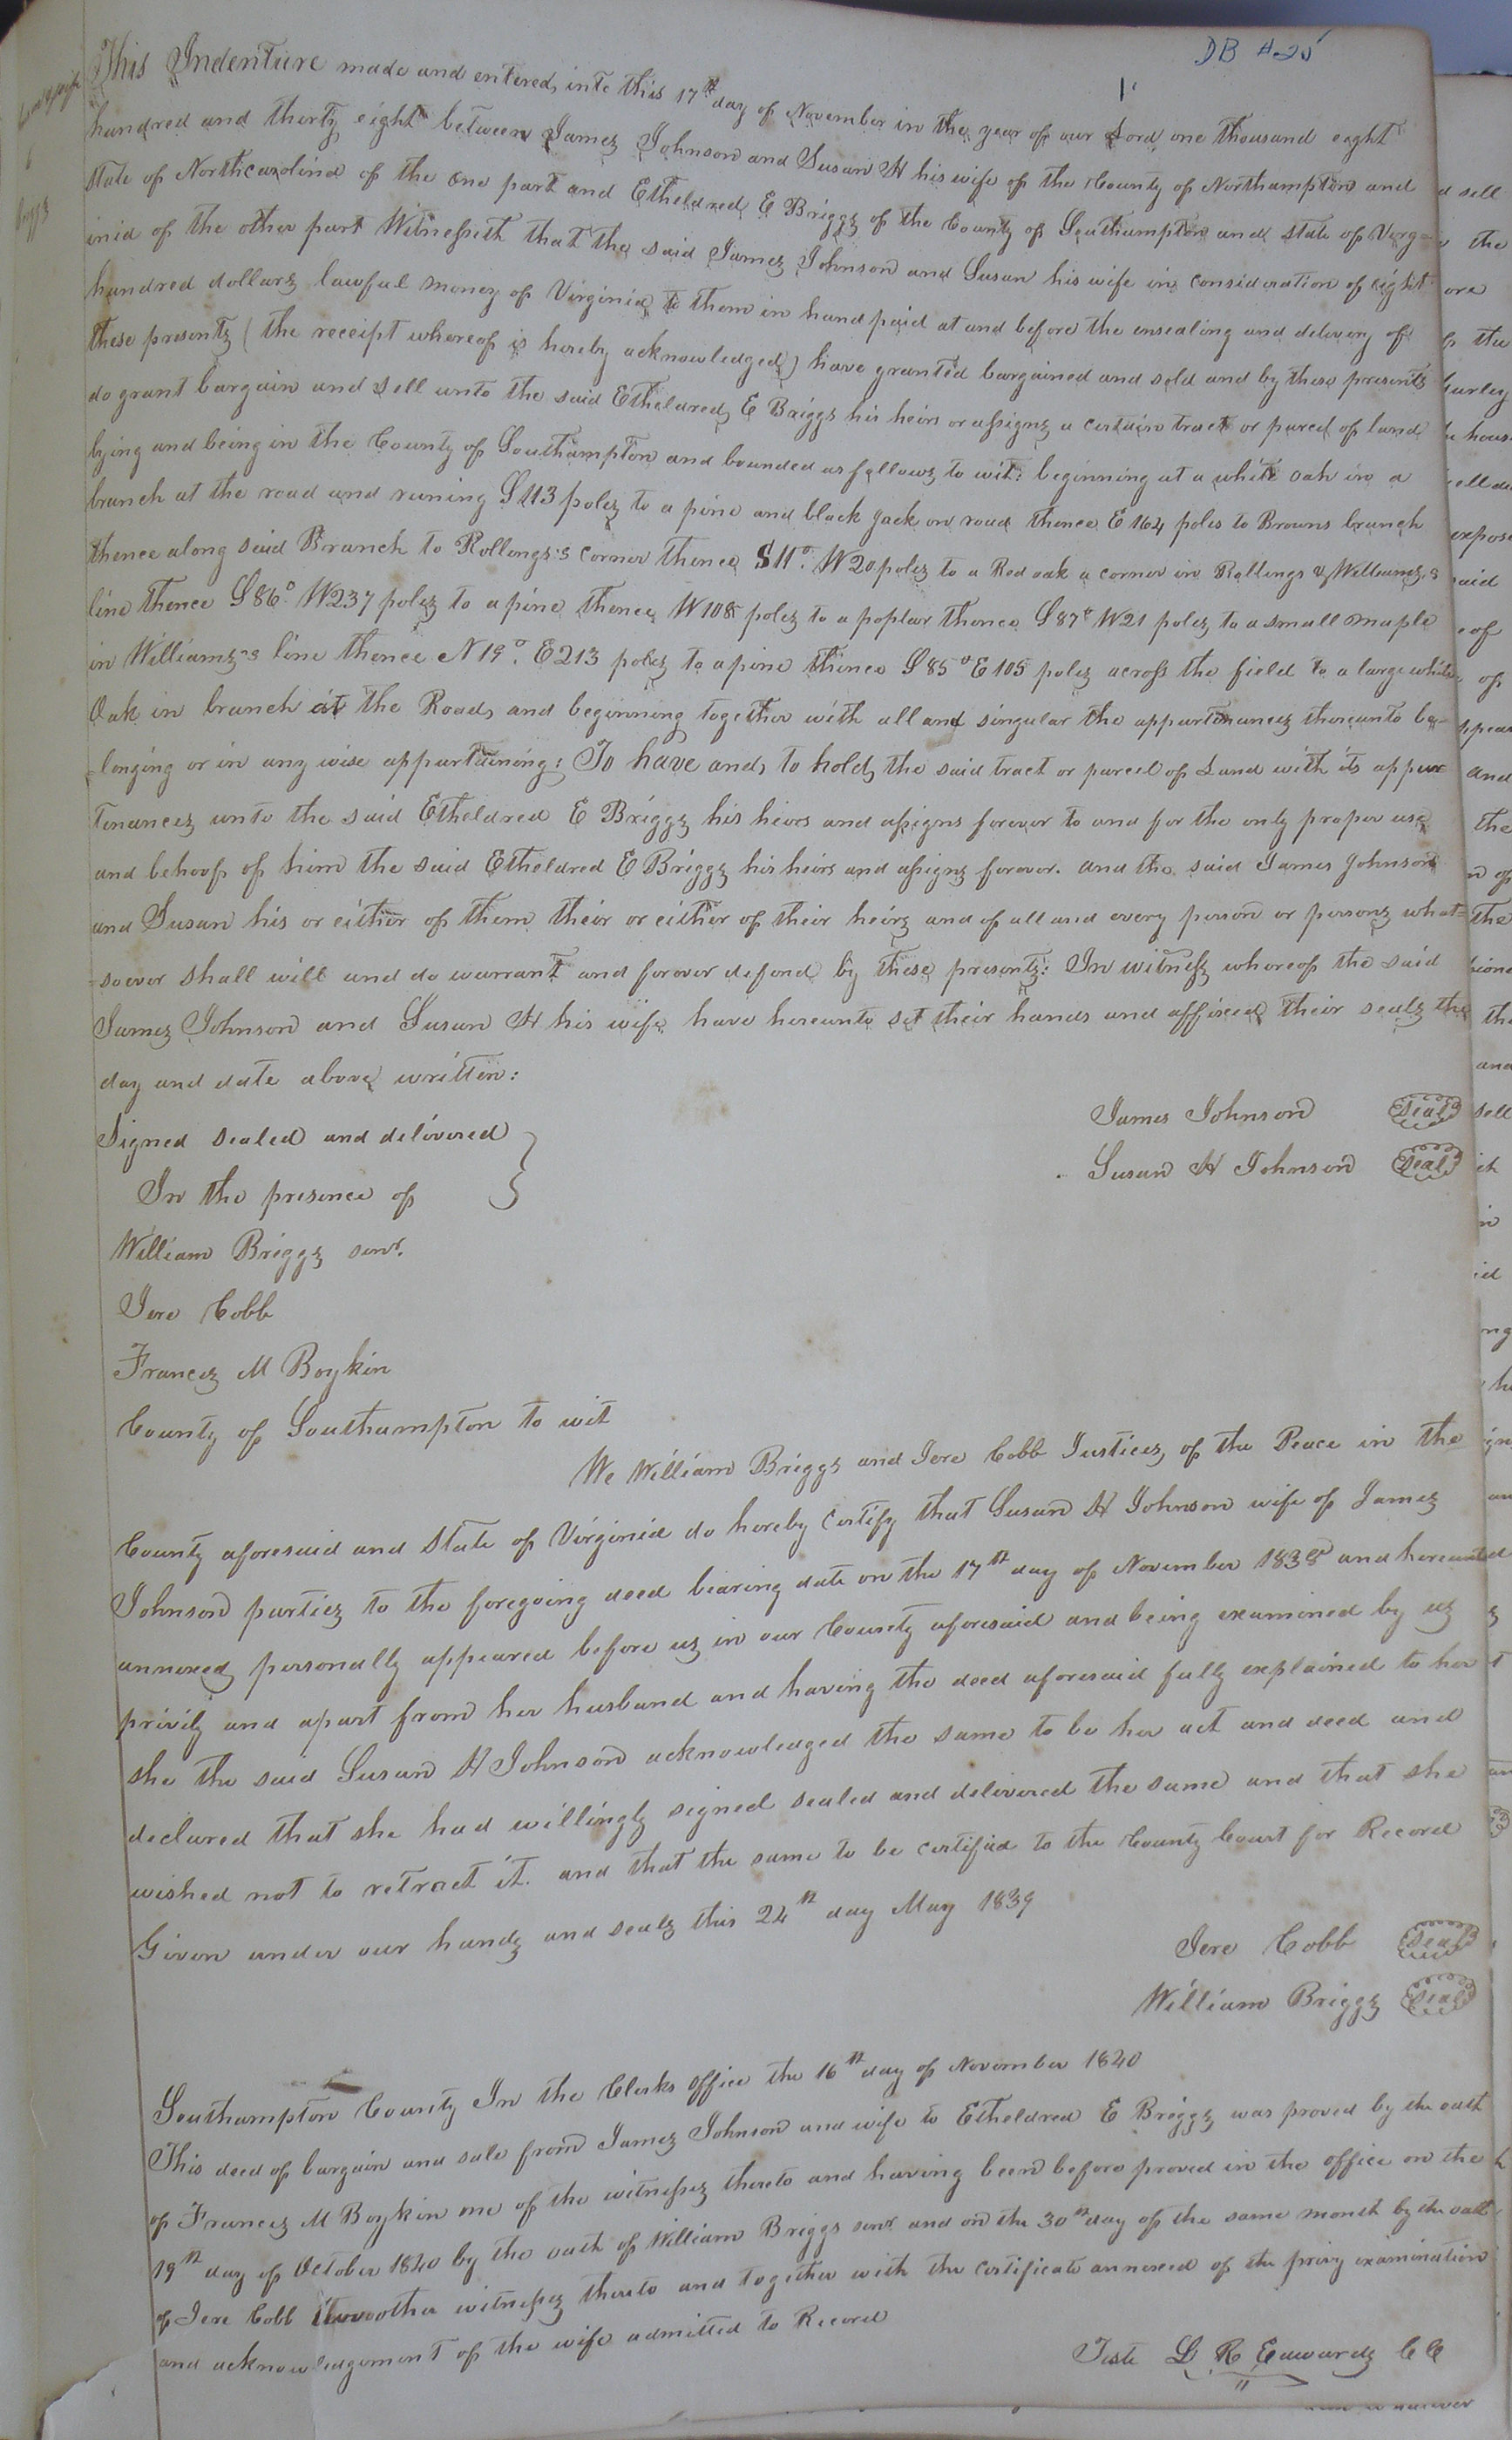 DB #25
1
This Indenture made and entered into this 17th day of November in the year of our Lord one thousand eight
hundred and thirty eight between James Johnson and Susan H his wife of the County of Northampton and
State of Northcarolina of the one part and Etheldred E Briggs of the County of Southampton and state of Virga-
inia of the other part Witnesseth that the said James Johnson and Susan his wife in consideration of eight
hundred dollars lawful money of Virginia to them in hand paid at and before the ensealing and delivery of
these presents (the receipt whereof is hereby acknowledged) have granted bargained and sold and by these presents
do grant bargain and sell unto the said Etheldred E Briggs his heirs or assigns a certain tract or parcel of land
lying and being in the County of Southampton and bounded as follows to wit: beginning at a white oak in a
branch at the road and runing S 113 poles to a pine and black jack on road thence E 164 poles to Browns branch
thence along said Branch to Rollings's corner thence S 11°. W 20 poles to a Red oak a corner in Rollings & Williams,s
line thence S 86° W 237 poles to a pine thence W 108 poles to a poplar thence S 87° W 21 poles to a small maple
in Williams's line thence N 19°. E 213 poles to a pine thence S 85° E 105 poles across the field to a large white
Oak in branch at the Road and beginning together with all and singular the appurtenances thereunto be-
-longing or in any wise appurtaining: To have and to hold the said tract or parcel of Land with its appur
tenances unto the said Etheldred E Briggs his heirs and assigns forever to and for the only proper use
and behoof of him the said Etheldred E Briggs his heirs and assigns forever. and the said James Johnson
and Susan his or either of them their or either of their heirs and of all and every person or persons what-
-soever shall will and do warrant and forever defend by these presents: In witness whereof the said
James Johnson and Susan H his wife have hereunto set their hands and affixed their seals the
day and date above written:
James Johnson Seal
Signed sealed and delivered
Susan H Johnson Seal
In the presence of
William Briggs senr.
Jere Cobb
Frances M Boykin
County of Southampton to wit
We William Briggs and Jere Cobb Justices of the Peace in the
County aforesaid and State of Virginia do hereby certify that Susan H Johnson wife of James
Johnson parties to the foregoing deed bearing date on the 17th day of November 1838 and hereunto
annexed personally appeared before us in our County aforesaid and being examined by us
privily and apart from her husband and having the deed aforesaid fully explained to her
she the said Susan H Johnson acknowledged the same to be her act and deed and
declared that she had willingly signed sealed and delivered the same and that she
wished not to retract it. and that the same to be certified to the County Court for Record
Given under our hands and seals this 24th day May 1839
Jere Cobb Seal
William Briggs Seal
Southampton County In the Clerks office the 16th day of November 1840
This deed of bargain and sale from James Johnson and wife to Etheldred E Briggs was proved by the oath
of Frances M Boykin one of the witnesses thereto and having been before proved in the office on the
19th day of October 1840 by the oath of William Briggs senr. and on the 30th day of the same month by the oath
of Jere Cobb two other witnesses thereto and together with the certificate annexed of the privy examination
and acknowledgement of the wife admitted to Record
Teste L R Edwards CC